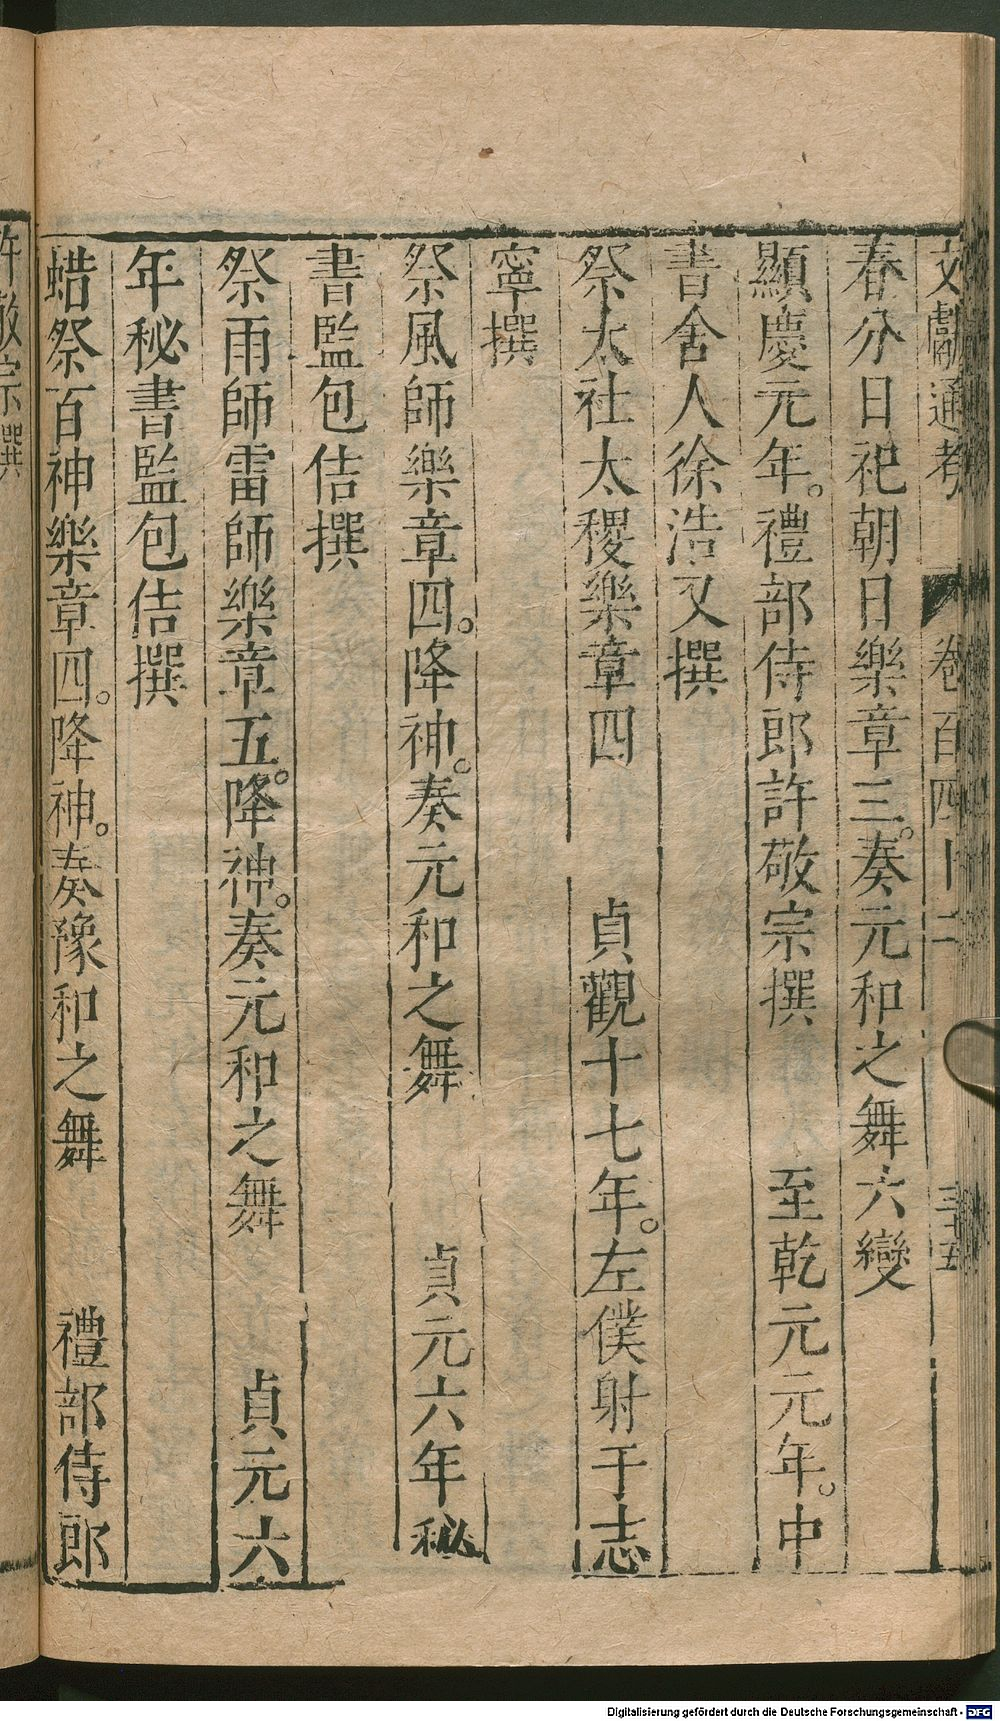 文獻通考 卷百四十二 三十五
春分日祀朝日樂章三。奏元和之舞六變
顯慶元年。禮部侍郎許敬宗撰 至乾元元年。中
書舍人徐浩又撰
祭太社太稷樂章四 貞觀十七年。左僕射于志
寧撰
祭風師樂章四。降神。奏元和之舞 貞元六年秘
書監包佶撰
祭雨師雷師樂章五。降神。奏元和之舞 貞元六
年秘書監包佶撰
蜡祭百神樂章四。降神。奏豫和之舞 禮部侍郎
許敬宗撰
Digitalisierung gefördert durch die Deutsche Forschungsgemeinschaft - DFG